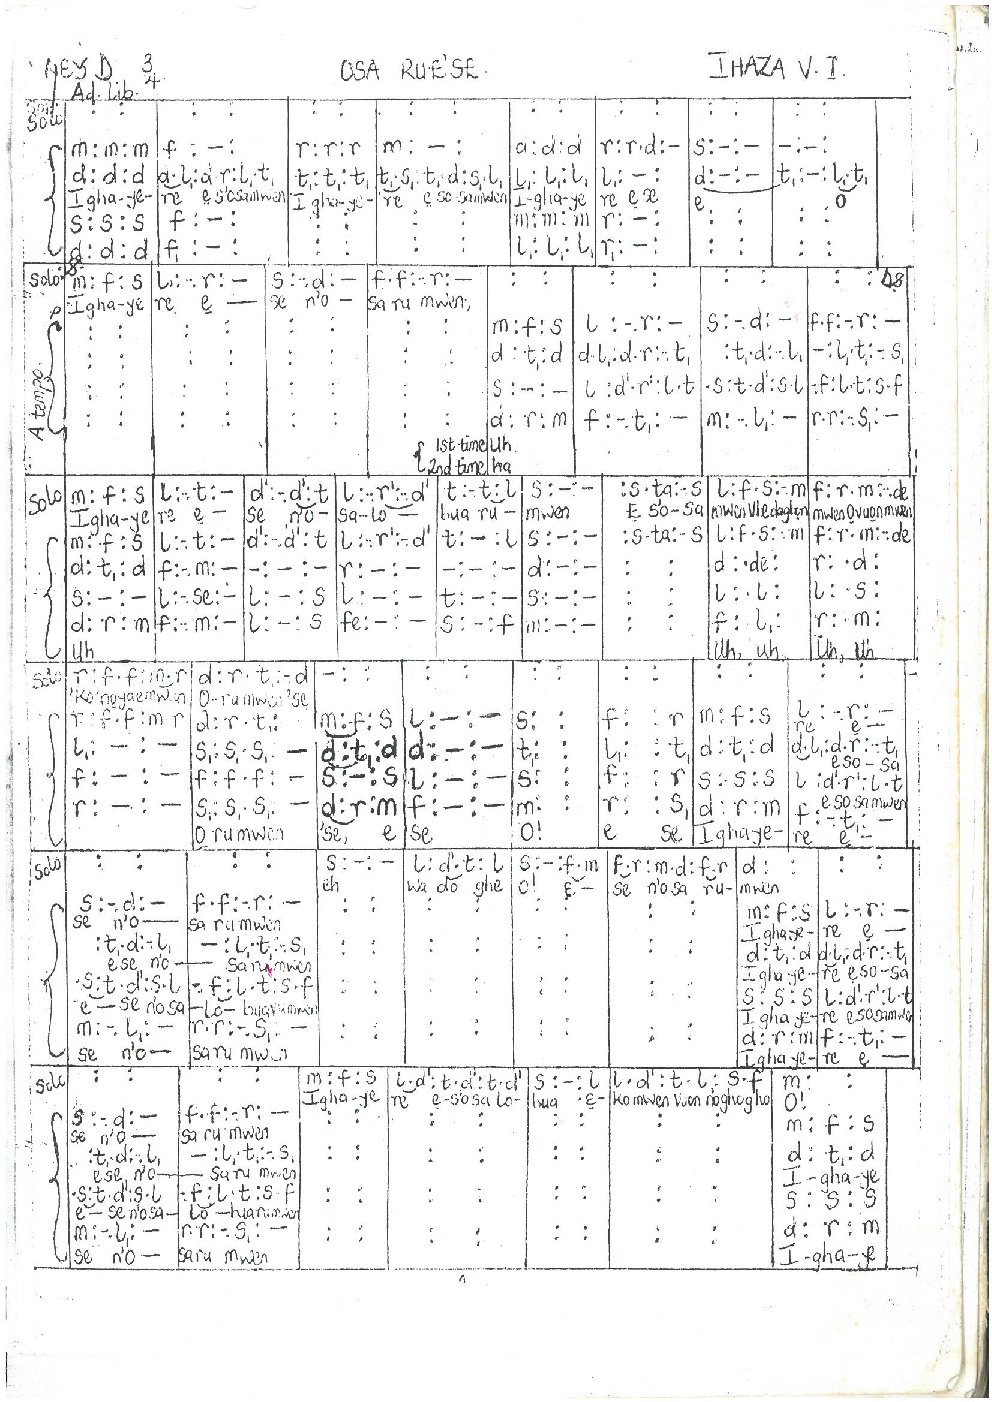 KEY D 3/4 OSA RU E'SE. IHAZA V. I.
Ad. lib.
Solo : : : : : : : : : : : : : : : :
m : m : m | f : - : | r : r : r | m : - : | d : d : d | r : r . d : - | s : - : - | - : - :
d : d : d | d . l, : d . r : l, . t, | t, : t, : t, | t, . s, : t, . d : s, . l, | l, : l, : l, | l, : - : | d : - : - | t, : - : l, . t,
I gha-ye- re e s'osamwen I gha-ye- re e so-samwen I-gha-ye re e se e O
s : s : s | f : - : | : : | : : | m : m : m | r : - : | : : | : :
d : d : d | f, : - : | : : | : : | l, : l, : l, | r, : - : | : : | : :
Solo :S: m : f : s | l : - . r : - | s : - . d : - | f . f : - . r : - | : : | : : | : : | : : DS
I gha-ye re e — se n'o — sa ru mwen,
: : | : : | : : | : : | m : f : s | l : - . r : - | s : - . d : - | f . f : - . r : -
: : | : : | : : | : : | d : t, : d | d . l, : d . r : - . t, | : t, . d : - . l, | - : l, . t, : - . s,
: : | : : | : : | : : | s : - : - | l : d' . r' : l . t | . s : t . d' : s . l | . f : l . t : s . f
: : | : : | : : | : : | d : r : m | f : - . t, : - | m : - . l, : - | r . r : - . s, : -
1st time Uh
2nd time ha
Solo m : f : s | l : - . t : - | d' : - . d' : t | l : - . r' : - . d' | t : - . t : l | s : - : - | : s . ta : - . s | l : f . s : - . m | f : r . m : - . de
I gha-ye re e — se n'o- sa-lo- hua ru- mwen E so-sa
m : f : s | l : - . t : - | d' : - . d' : t | l : - . r' : - . d' | t : - : l | s : - : - | : s . ta : - . s | l : f . s : - . m | f : r . m : - . de
d : t, : d | f : - . m : - | - : - : - | r : - : - | - : - : - | d : - : - | : : | d : . de : | r : . d :
s : - : - | l : - . se : - | l : - : s | l : - : - | t : - : - | s : - : - | : : | l : . l : | l : . s :
d : r : m | f : - . m : - | l : - : s | fe : - : - | s : - : f | m : - : - | : : | f : . l, : | r : . m :
Uh Uh, uh Uh, Uh
Solo r : f . f : m . r | d : r . t, : - . d | - : : | : : | : : | : : | : : | : :
O-ru mwen 'se
r : f . f : m . r | d : r . t, : | m : f : s | l : - : - | s : : | f : : r | m : f : s | l : - . r : -
re e —
l, : - : - | s, : s, . s, : - | d : t, : d | d : - : - | t, : : | l, : : t, | d : t, : d | d . l, : d . r : - . t,
e so-sa
f : - : - | f : f . f : - | s : - : s | l : - : - | s : : | f : : r | s : s : s | l : d' . r' : l . t
e so samwen
r : - : - | s, : s, . s, : - | d : r : m | f : - : - | m : : | r : : s, | d : r : m | f : - . t, : -
O ru mwen 'se, e se O! e se I gha-ye- re e —
Solo : : | : : | s : - : - | l : d' . t : l | s : - : f . m | f . r : m . d : f . r | d : : | : :
eh wa do ghe O! E — se n'o sa ru- mwen
s : - . d : - | f . f : - . r : - | : : | : : | : : | : : | m : f : s | l : - . r : -
se n'o — sa ru mwen I gha-ye- re e —
: t, . d : - . l, | - : l, . t, : - . s, | : : | : : | : : | : : | d : t, : d | d . l, : d . r : - . t,
e se no — sa ru mwen I gha-ye- re e so-sa
. s : t . d' : s . l | . f : l . t : s . f | : : | : : | : : | : : | s : s : s | l : d' . r' : l . t
e — se n'o sa — lo — hua ru mwen I gha ye- re e so samwen
m : - . l, : - | r . r : - . s, : - | : : | : : | : : | : : | d : r : m | f : - . t, : -
se n'o — sa ru mwen I gha ye- re e —
Solo : : | : : | m : f : s | l . d' : t . d' : t . d' | s : - : l | l . d' : t . l : s . f | m : :
I gha-ye re e-so sa lo- hua E- ko mwen vuen no gho gho O!
s : - . d : - | f . f : - . r : - | : : | : : | : : | : : | m : f : s
se n'o — sa ru mwen
: t, . d : - . l, | - : l, . t, : - . s, | : : | : : | : : | : : | d : t, : d
e se, n'o — sa ru mwen I-gha-ye
. s : t . d' : s . l | . f : l . t : s . f | : : | : : | : : | : : | s : s : s
e — se n'o sa — lo — hua ru mwen
m : - . l, : - | r . r : - . s, : - | : : | : : | : : | : : | d : r : m
se n'o — sa ru mwen I-gha-ye